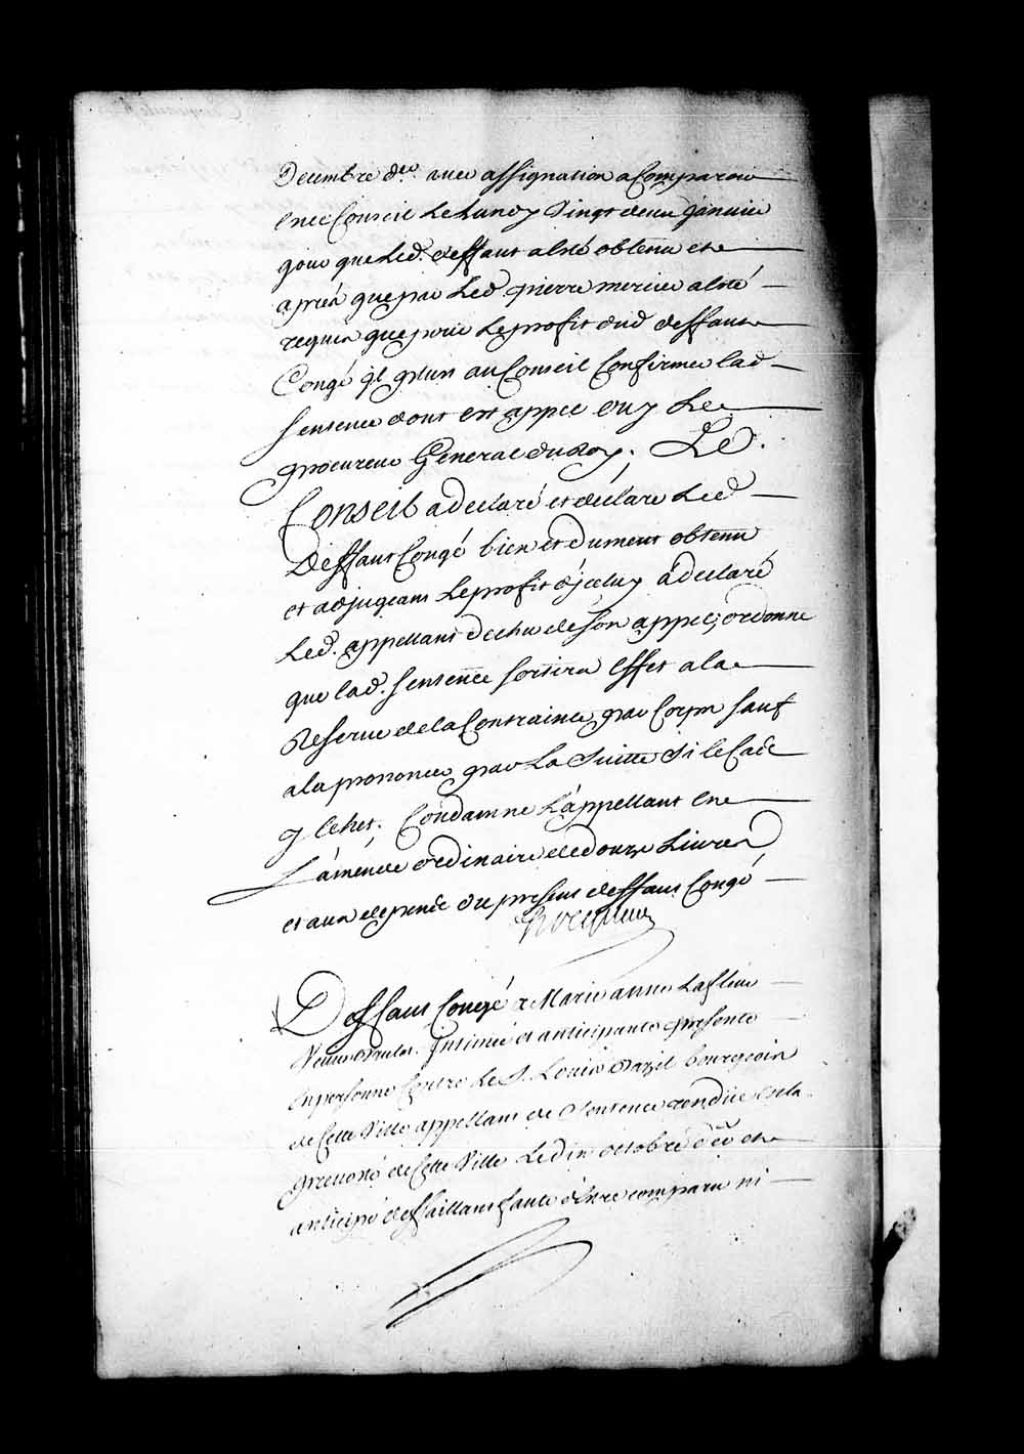 Decembre d.er avec assignation a Comparoir
en ce Conseil Le Lundy Vingt deux Janvier
jour que Led. deffaut a esté obtenu et
aprés que par Led. pierre mercier a esté
requis que pour Le profit dud deffaut
Congé il plut au Conseil Confirmer lad
sentence dont est appel ouy Le
procureur General du Roy. Le
Conseil a declaré et declare Led
Deffaut Congé bien et dument obtenu
et adjugeant Le profit d'jceluy a declaré
Led. appellant dechu de son appel; ordonne
que lad. sentence sortira effet a la
Reserve de la Contrainte par Corps sauf
a la prononcer par La Suitte Si le Cas
y Echet. Condamne L'appellant en
L'amende ordinaire de douze Livres
et aux depens du present deffaut Congé

Deffaut Congé a Marie anne Lafleur
Veuve Intimée et anticipante presente
en personne Contre Le S. Louis Bazil bourgeois
de Cette Ville appellant de Sentence rendüe en la
prevosté de Cette Ville Le dix octobre d.er et
anticipé deffaillant faute d'Etre comparu ni